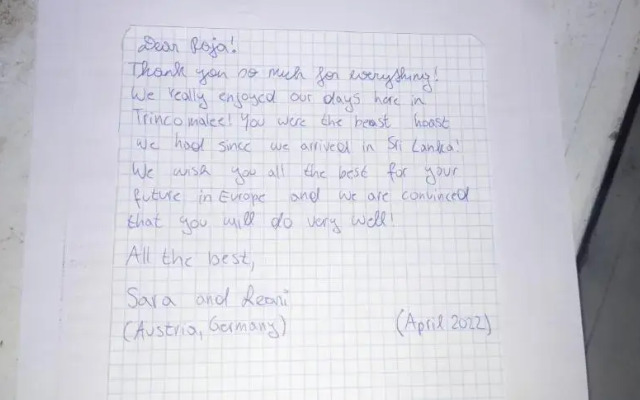 Dear Roja!
Thank you so much for everything!
We really enjoyed our days here in
Trincomalee! You were the beast hoast
we had since we arrived in Sri Lanka!
We wish you all the best for your
future in Europe and we are convinced
that you will do very well!
All the best,
Sara and Leani
(Austria, Germany) (April 2022)